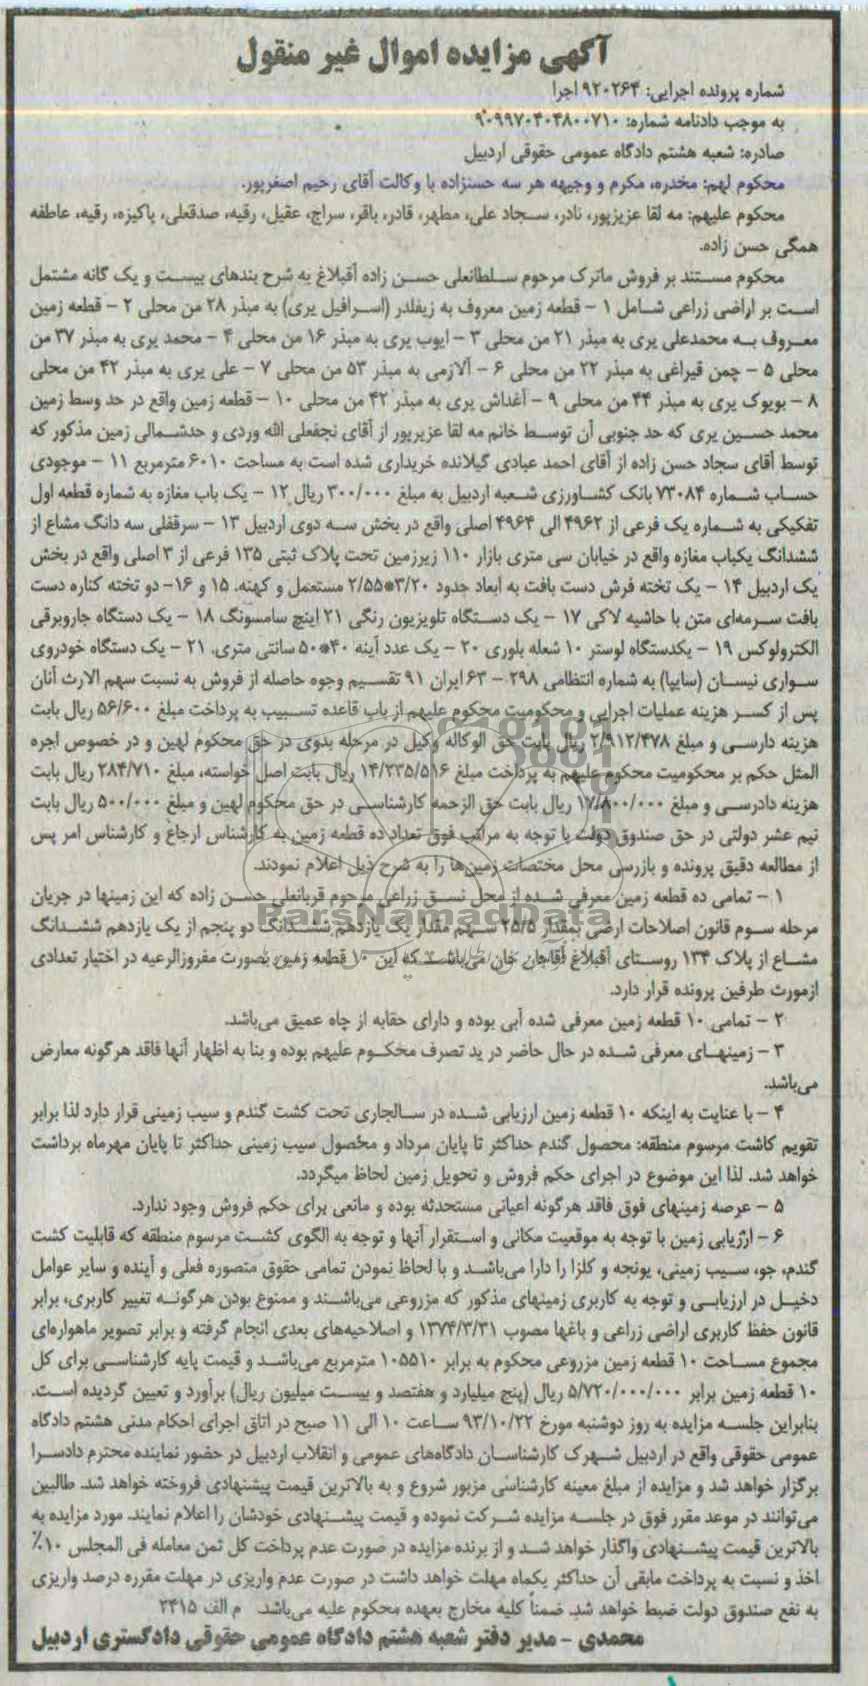 آگهی مزایده اموال غیر منقول
شماره پرونده اجرایی: ۹۲۰۲۶۴ اجرا
به موجب دادنامه شماره: ۹۰۹۹۷۰۴۰۴۸۰۰۷۱۰
صادره: شعبه هشتم دادگاه عمومی حقوقی اردبیل
محکوم لهم: مخدره، مکرم و وجیهه هر سه حسنزاده با وکالت آقای رحیم اصغرپور.
محکوم علیهم: مه لقا عزیزپور، نادر، سجاد علی، مطهر، قادر، باقر، سراج، عقیل، رقیه، صدقعلی، پاکیزه، رقیه، عاطفه
همگی حسن زاده.
محکوم مستند بر فروش ماترک مرحوم سلطانعلی حسن زاده آقبلاغ به شرح بندهای بیست و یک گانه مشتمل
است بر اراضی زراعی شامل ۱ - قطعه زمین معروف به زیفلدر (اسرافیل یری) به مبذر ۲۸ من محلی ۲ - قطعه زمین
معروف به محمدعلی یری به مبذر ۲۱ من محلی ۳ - ایوب یری به مبذر ۱۶ من محلی ۴ - محمد یری به مبذر ۳۷ من
محلی ۵ - چمن قیراغی به مبذر ۲۲ من محلی ۶ - آلازمی به مبذر ۵۳ من محلی ۷ - علی یری به مبذر ۴۲ من محلی
۸ - بویوک یری به مبذر ۴۴ من محلی ۹ - آغداش یری به مبذر ۴۲ من محلی ۱۰ - قطعه زمین واقع در حد وسط زمین
محمد حسین یری که حد جنوبی آن توسط خانم مه لقا عزیرپور از آقای نجفعلی الله وردی و حدشمالی زمین مذکور که
توسط آقای سجاد حسن زاده از آقای احمد عبادی گیلانده خریداری شده است به مساحت ۶۰۱۰ مترمربع ۱۱ - موجودی
حساب شماره ۷۳۰۸۴ بانک کشاورزی شعبه اردبیل به مبلغ ۳۰۰/۰۰۰ ریال ۱۲ - یک باب مغازه به شماره قطعه اول
تفکیکی به شماره یک فرعی از ۴۹۶۲ الی ۴۹۶۴ اصلی واقع در بخش سه دوی اردبیل ۱۳ - سرقفلی سه دانگ مشاع از
ششدانگ یکباب مغازه واقع در خیابان سی متری بازار ۱۱۰ زیرزمین تحت پلاک ثبتی ۱۳۵ فرعی از ۳ اصلی واقع در بخش
یک اردبیل ۱۴ - یک تخته فرش دست بافت به ابعاد حدود ۳/۲۰*۲/۵۵ مستعمل و کهنه. ۱۵ و ۱۶- دو تخته کناره دست
بافت سرمه‌ای متن با حاشیه لاکی ۱۷ - یک دستگاه تلویزیون رنگی ۲۱ اینچ سامسونگ ۱۸ - یک دستگاه جاروبرقی
الکترولوکس ۱۹ - یکدستگاه لوستر ۱۰ شعله بلوری ۲۰ - یک عدد آینه ۴۰*۵۰ سانتی متری. ۲۱ - یک دستگاه خودروی
سواری نیسان (سایپا) به شماره انتظامی ۲۹۸ - ۶۳ ایران ۹۱ تقسیم وجوه حاصله از فروش به نسبت سهم الارث آنان
پس از کسر هزینه عملیات اجرایی و محکومیت محکوم علیهم از باب قاعده تسبیب به پرداخت مبلغ ۵۶/۶۰۰ ریال بابت
هزینه دارسی و مبلغ ۲/۹۱۲/۴۷۸ ریال بابت حق الوکاله وکیل در مرحله بدوی در حق محکوم لهین و در خصوص اجره
المثل حکم بر محکومیت محکوم علیهم به پرداخت مبلغ ۱۴/۲۳۵/۵۱۶ ریال بابت اصل خواسته، مبلغ ۲۸۴/۷۱۰ ریال بابت
هزینه دادرسی و مبلغ ۱۷/۸۰۰/۰۰۰ ریال بابت حق الزحمه کارشناسی در حق محکوم لهین و مبلغ ۵۰۰/۰۰۰ ریال بابت
نیم عشر دولتی در حق صندوق دولت با توجه به مراتب فوق تعداد ده قطعه زمین به کارشناس ارجاع و کارشناس امر پس
از مطالعه دقیق پرونده و بازرسی محل مختصات زمین‌ها را به شرح ذیل اعلام نمودند.
۱ - تمامی ده قطعه زمین معرفی شده از محل نسق زراعی مرحوم قربانعلی حسن زاده که این زمینها در جریان
مرحله سوم قانون اصلاحات ارضی بمقدار ۲۵/۵ سهم مقدار یک یازدهم ششدانگ دو پنجم از یک یازدهم ششدانگ
مشاع از پلاک ۱۳۴ روستای آقبلاغ آقاجان خان می‌باشد که این ۱۰ قطعه زمین بصورت مفروزالرعیه در اختیار تعدادی
ازمورث طرفین پرونده قرار دارد.
۲ - تمامی ۱۰ قطعه زمین معرفی شده آبی بوده و دارای حقابه از چاه عمیق می‌باشد.
۳ - زمینهای معرفی شده در حال حاضر در ید تصرف محکوم علیهم بوده و بنا به اظهار آنها فاقد هرگونه معارض
می‌باشد.
۴ - با عنایت به اینکه ۱۰ قطعه زمین ارزیابی شده در سالجاری تحت کشت گندم و سیب زمینی قرار دارد لذا برابر
تقویم کاشت مرسوم منطقه: محصول گندم حداکثر تا پایان مرداد و محصول سیب زمینی حداکثر تا پایان مهرماه برداشت
خواهد شد. لذا این موضوع در اجرای حکم فروش و تحویل زمین لحاظ میگردد.
۵ - عرصه زمینهای فوق فاقد هرگونه اعیانی مستحدثه بوده و مانعی برای حکم فروش وجود ندارد.
۶ - ارزیابی زمین با توجه به موقعیت مکانی و استقرار آنها و توجه به الگوی کشت مرسوم منطقه که قابلیت کشت
گندم، جو، سیب زمینی، یونجه و کلزا را دارا می‌باشد و با لحاظ نمودن تمامی حقوق متصوره فعلی و آینده و سایر عوامل
دخیل در ارزیابی و توجه به کاربری زمینهای مذکور که مزروعی می‌باشند و ممنوع بودن هرگونه تغییر کاربری، برابر
قانون حفظ کاربری اراضی زراعی و باغها مصوب ۱۳۷۴/۳/۳۱ و اصلاحیه‌های بعدی انجام گرفته و برابر تصویر ماهواره‌ای
مجموع مساحت ۱۰ قطعه زمین مزروعی محکوم به برابر ۱۰۵۵۱۰ مترمربع می‌باشد و قیمت پایه کارشناسی برای کل
۱۰ قطعه زمین برابر ۵/۷۲۰/۰۰۰/۰۰۰ ریال (پنج میلیارد و هفتصد و بیست میلیون ریال) برآورد و تعیین گردیده است.
بنابراین جلسه مزایده به روز دوشنبه مورخ ۹۳/۱۰/۲۲ ساعت ۱۰ الی ۱۱ صبح در اتاق اجرای احکام مدنی هشتم دادگاه
عمومی حقوقی واقع در اردبیل شهرک کارشناسان دادگاه‌های عمومی و انقلاب اردبیل در حضور نماینده محترم دادسرا
برگزار خواهد شد و مزایده از مبلغ معینه کارشناسی مزبور شروع و به بالاترین قیمت پیشنهادی فروخته خواهد شد. طالبین
می‌توانند در موعد مقرر فوق در جلسه مزایده شرکت نموده و قیمت پیشنهادی خودشان را اعلام نمایند. مورد مزایده به
بالاترین قیمت پیشنهادی واگذار خواهد شد و از برنده مزایده در صورت عدم پرداخت کل ثمن معامله فی المجلس ۱۰٪
اخذ و نسبت به پرداخت مابقی آن حداکثر یکماه مهلت خواهد داشت در صورت عدم واریزی در مهلت مقرره درصد واریزی
به نفع صندوق دولت ضبط خواهد شد. ضمنا کلیه مخارج بعهده محکوم علیه می‌باشد. م الف ۲۴۱۵
محمدی - مدیر دفتر شعبه هشتم دادگاه عمومی حقوقی دادگستری اردبیل
ParsNamadData